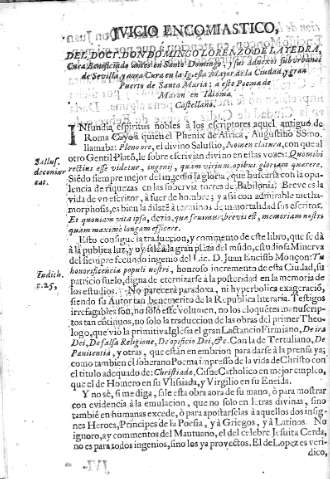 IVICIO ENCOMIASTICO,
DEL DOCT. DON DOMINGO LORENZO DE LATEDRA,
Cura Beneficiado en Santo Domingo, y sus anexos suburbanos
de Sevilla, y aora Cura en la Iglesia Mayor de la Ciudad, y gran
Puerto de Santa Maria: a este Poema de
Maron en Idioma
Castellano.
INfundia espiritus nobles à los escriptores aquel antiguo de
Roma Cayo à quien el Phenix de Africa, Augustino
llamaba: con que al
otro Gentil Platò, le sobrescrivian divino en estas voces: Quomobi
rectius esse videtur, ingenij, quam virium opibus gloriam quærere.
Siẽdo siempre mejor del ingenio la gloria, que buscarla con la opu-
lencia de riquezas en las sobervias torres de Babilonia; Breve es la
vida de vn escritor, à fuer de hombre; y assi con admirable metha-
morphosis, es bien la dilate à termino de inmortalidad su escritor.
Et quoniam vita ipsa, qua fruimur: brevis est, memoriam nostri
quàm maximè longam efficere.
Sallust.
de coniur
rat.
Esto consigue la traduccion, y commento de este libro, que se dà
à la publica luz, y oy sale à la gran plaza del mũdo, estudiosa Minerva
del siempre fecundo ingenio del Lic. D. Juan Encisso Monçon: Tu
honorificencia populi nostri, honroso incremento de esta Ciudad, su
patricio suelo, digna de eternizarse à la posteridad en la memoria de
los estudios. No parecerà paradoxa, ni hyperbolica exageraciõ,
siendo su Autor tan benemerito de la Republica literaria. Testigos
irrefagables son, no solo este volumen, no los eloquẽtes manuscrip-
tos tan côtinuos, no solo la traduccion de las obras del primer Theo-
logo, que viò la primitiva Iglesia el gran Lactancio Firmiano, De ira
Dei, De falsa Religione, De opificio Dei, &c. Con la de Tertuliano, De
Pænitentia, y otras, que estàn en embrion para darse à la prensa ya;
como tambien el soberano Poema impresso de la vida de Christo con
el titulo adequado de: Christiada, Cisne Catholico en mejor empleo,
que el de Homero en su Vlisiada, y Virgilio en su Eneida.
Iudich.
c.15,
Y no sè, si me diga, sale esta obra aora de su mano, ò para mostrar
con evidencia à la emulacion, que no solo en letras divinas, sino
tambiẽ en humanas excede, ò para apostarselas à aquellos dos insig-
nes Heroes, Principes de la Poesia, y à Griegos, y à Latinos. No
ignoro, ay commentos del Mantuano, el del celebre Jesuita Cerda,
no es para todos ingenios, sino los ya proyectos. El de Lopez es veri-
dico,